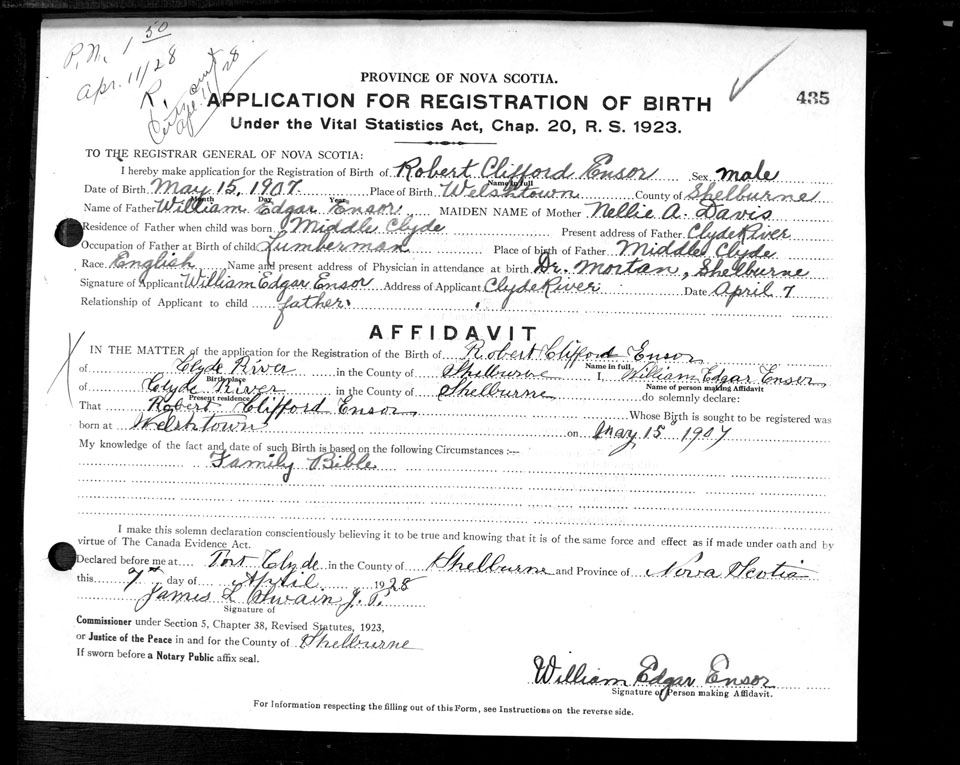 P.N. 1 50
Apr. 11/28
R.
Cert. sent
Apr. 11/28
PROVINCE OF NOVA SCOTIA.
435
APPLICATION FOR REGISTRATION OF BIRTH
Under the Vital Statistics Act, Chap. 20, R. S. 1923.
TO THE REGISTRAR GENERAL OF NOVA SCOTIA:
I hereby make application for the Registration of Birth of Robert Clifford Ensor Sex male
Name in full
Date of Birth May 15, 1907 Place of Birth Welshtown County of Shelburne
Month Day Year
Name of Father William Edgar Ensor MAIDEN NAME of Mother Nellie A. Davis
Residence of Father when child was born Middle Clyde Present address of Father Clyde River
Occupation of Father at Birth of child Lumberman Place of birth of Father Middle Clyde
Race English Name and present address of Physician in attendance at birth Dr. Mortan, Shelburne
Signature of Applicant William Edgar Ensor Address of Applicant Clyde River Date April 7
Relationship of Applicant to child father.
AFFIDAVIT
IN THE MATTER of the application for the Registration of the Birth of Robert Clifford Ensor
Name in full
of Clyde River in the County of Shelburne I, William Edgar Ensor
Birthplace Name of person making Affidavit
of Clyde River in the County of Shelburne do solemnly declare:
Present residence
That Robert Clifford Ensor Whose Birth is sought to be registered was
born at Welshtown on May 15 1907
My knowledge of the fact and date of such Birth is based on the following Circumstances :--
Family Bible
I make this solemn declaration conscientiously believing it to be true and knowing that it is of the same force and effect as if made under oath and by
virtue of The Canada Evidence Act.
Declared before me at Port Clyde in the County of Shelburne and Province of Nova Scotia
this 7th day of April 1928
James L Swain J. P.
Signature of
Commissioner under Section 5, Chapter 38, Revised Statutes, 1923,
or Justice of the Peace in and for the County of Shelburne
If sworn before a Notary Public affix seal.
William Edgar Ensor
Signature of Person making Affidavit.
For Information respecting the filling out of this Form, see Instructions on the reverse side.